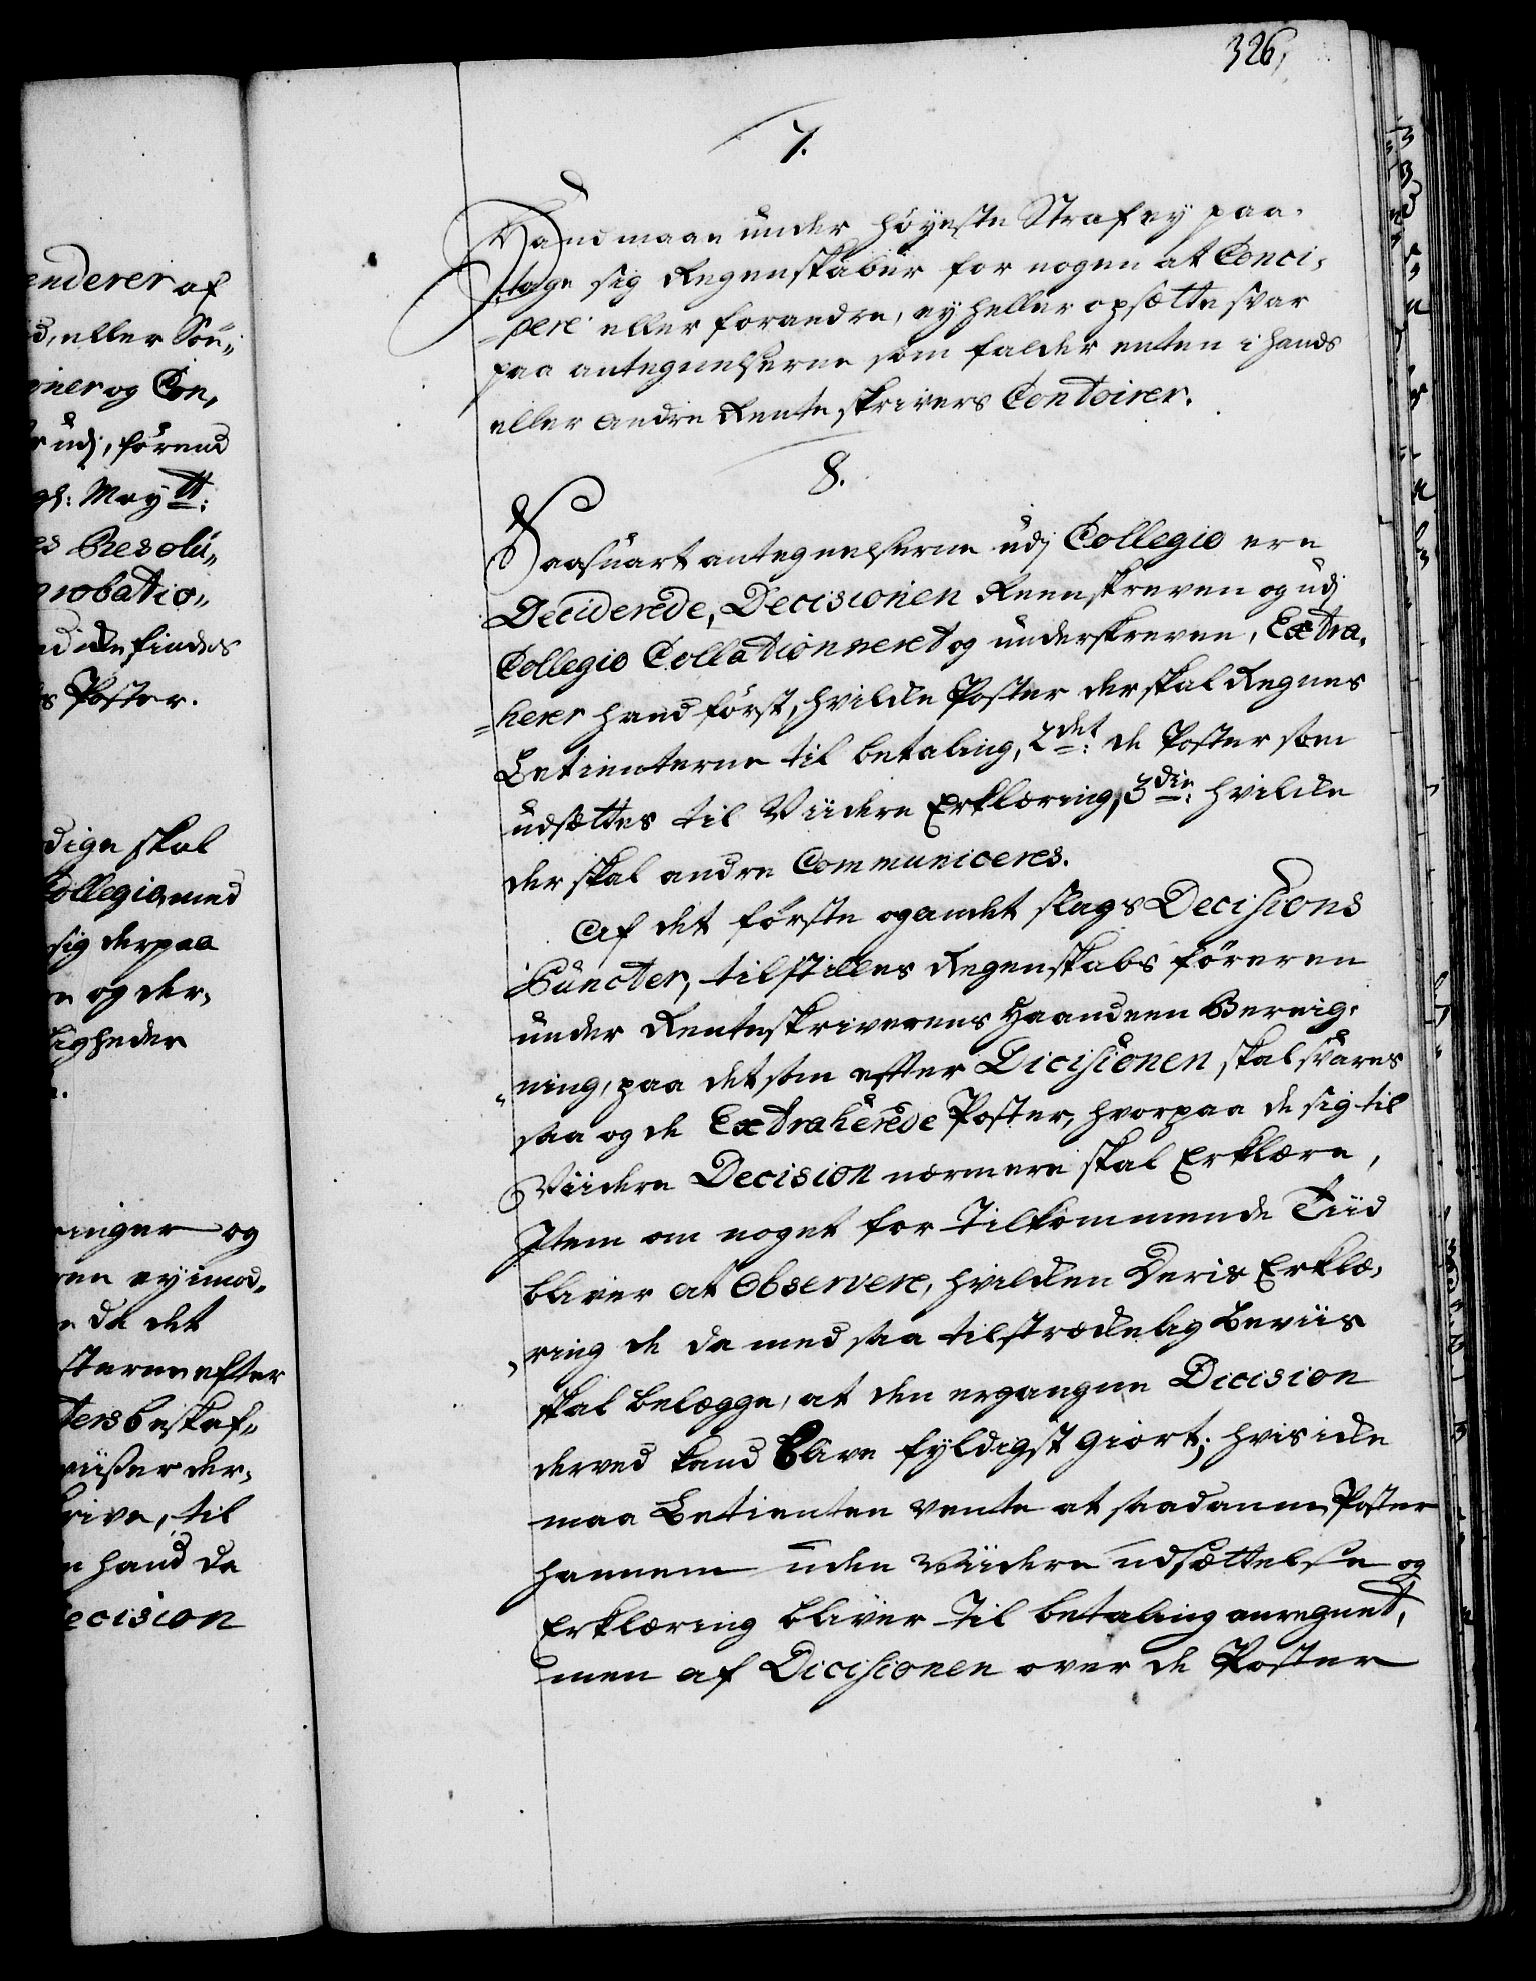 326,
7.
Hand maae under höyeste Straf ey paa-
tage sig Regenskabur for nogen at Conci-
pere eller forandre, ey heller opsætte Svar
paa antegnelserne som falder enten i hands
eller andre Renteskrivers Contoirer.
8.
Saasnart antegnelserne udj Collegio ere
Deciderede, Decisionen Reenskreven og udj
Collegio Collationneret og underskreven, Extra-
=herer hand först, hvilcke Poster der skal Regnes
Betienterne til betaling, 2det: de Poster som
udsættes til Viidere Erklæring, 3die: hvilcke
der skal andre Communiceres.
Af det förste og andet slags Decisions
Puncter, tilstilles Regenskabs föreren
under Renteskriverens Haand een Bereig-
"ning, paa det som efter Dicisionen skal svares
saa og de Extraherede Poster, hvorpaa de sig til
Viidere Decision nærmere skal Erklære,
Item om noget for Tilkommende Tiid
bliver at Observere, hvilcken Deris Erklæ-
"ring de da med saa tilstræckelig Beviis
skal belegge, at den ergangne Dicision
derved kand blive fyldigst giort; hvis icke
maa Betienten vente at saadanne Poster
hannem uden Viidere udsættelse og
Erklæring bliver til betaling anregnet,
men af Dicisionen over de Poster
enderer af
d, eller Sou-
oner og Con-
udj, förend
gl: May tt:
es Resolu-
probatio-
d icke findes
s Poster.
dige skal
Collegio med
sig derpaa
og der-
ligheder
ringer og
ren ey imod-
da det
sterne efter
ters beskaf-
viisser der-
krive, til
hand da
ecision